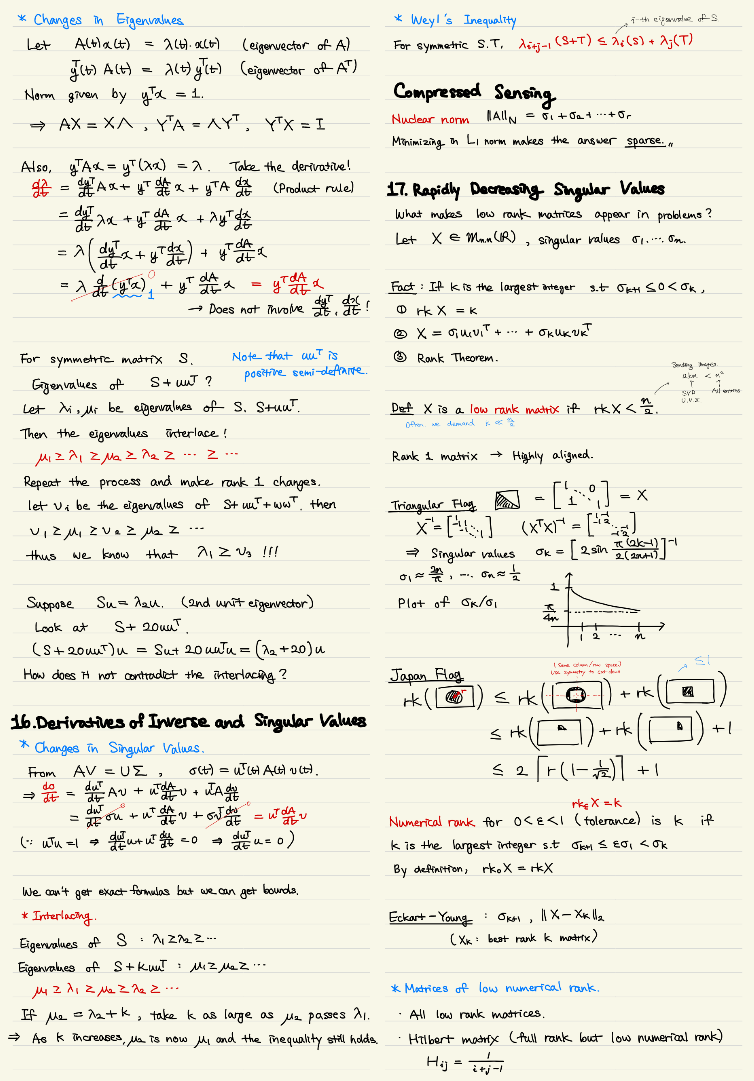 * Changes in Eigenvalues
Let A(t)x(t) = λ(t)·x(t) (eigenvector of A)
yᵀ(t) A(t) = λ(t) yᵀ(t) (eigenvector of Aᵀ)
Norm given by yᵀx = 1.
⇒ AX = XΛ , YᵀA = ΛYᵀ , YᵀX = I
Also, yᵀAx = yᵀ(λx) = λ. Take the derivative!
dλ/dt = dyᵀ/dt Ax + yᵀ dA/dt x + yᵀA dx/dt (Product rule)
= dyᵀ/dt λx + yᵀ dA/dt x + λyᵀ dx/dt
= λ(dyᵀ/dt x + yᵀ dx/dt) + yᵀ dA/dt x
= λ d/dt (yᵀx) + yᵀ dA/dt x = yᵀ dA/dt x
0
1
→ Does not involve dyᵀ/dt, dx/dt !
For symmetric matrix S.
Note that uuᵀ is
positive semi-definite.
Eigenvalues of S + uuᵀ ?
Let λᵢ, μᵢ be eigenvalues of S, S+uuᵀ.
Then the eigenvalues interlace!
μ₁ ≥ λ₁ ≥ μ₂ ≥ λ₂ ≥ ··· ≥ ···
Repeat the process and make rank 1 changes.
let νᵢ be the eigenvalues of S+uuᵀ+wwᵀ. then
ν₁ ≥ μ₁ ≥ ν₂ ≥ μ₂ ≥ ···
thus we know that λ₁ ≥ ν₃ !!!
Suppose Su = λ₂u. (2nd unit eigenvector)
Look at S + 20uuᵀ.
(S+20uuᵀ)u = Su + 20uuᵀu = (λ₂+20)u
How does it not contradict the interlacing?
16. Derivatives of Inverse and Singular Values
* Changes in Singular Values.
From AV = UΣ , σ(t) = uᵀ(t)A(t)v(t).
⇒ dσ/dt = duᵀ/dt Av + uᵀ dA/dt v + uᵀA dv/dt
= duᵀ/dt σu + uᵀ dA/dt v + σvᵀ dv/dt = uᵀ dA/dt v
(∵ uᵀu = 1 ⇒ duᵀ/dt u + uᵀ du/dt = 0 ⇒ duᵀ/dt u = 0)
We can't get exact formulas but we can get bounds.
* Interlacing.
Eigenvalues of S : λ₁ ≥ λ₂ ≥ ···
Eigenvalues of S + kuuᵀ : μ₁ ≥ μ₂ ≥ ···
μ₁ ≥ λ₁ ≥ μ₂ ≥ λ₂ ≥ ···
If μ₂ = λ₂+k, take k as large as μ₂ passes λ₁.
⇒ As k increases, μ₂ is now μ₁ and the inequality still holds.
* Weyl's Inequality
i-th eigenvalue of S
For symmetric S.T, λᵢ₊ⱼ₋₁ (S+T) ≤ λᵢ(S) + λⱼ(T)
Compressed Sensing
Nuclear norm ‖A‖N = σ₁ + σ₂ + ··· + σᵣ
Minimizing in L₁ norm makes the answer sparse.
17. Rapidly Decreasing Singular Values
What makes low rank matrices appear in problems?
Let X ∈ Mₙ,ₙ(ℝ) , singular values σ₁, ···, σₙ.
Fact : If k is the largest integer s.t σₖ₊₁ ≤ 0 < σₖ,
① rk X = k
② X = σ₁u₁v₁ᵀ + ··· + σₖuₖvₖᵀ
③ Rank Theorem.
Sending Images
2kn < n²
SVD
All entries
Def X is a low rank matrix if rk X < n/2.
Often we demand k ≪ n/2
Rank 1 matrix → Highly aligned.
Triangular Flag = [1 0 1 ⋱ 1] = X
X⁻¹ = [1 -1 1 ⋱] (XᵀX)⁻¹ = [1 -1 -1 2 ⋱]
⇒ Singular values σₖ = [2 sin π(2k-1)/2(2n+1)]⁻¹
σ₁ ≈ 2n/π, ··· σₙ ≈ 1/2
Plot of σₖ/σ₁
1
π/4n
1 2 ··· n
Japan Flag
≤ 1
rk( r ) ≤ rk( ) + rk( )
≤ rk( ) + rk( ) + 1
≤ 2⌈r(1 - 1/√2)⌉ + 1
rkεX = k
Numerical rank for 0<ε<1 (tolerance) is k if
k is the largest integer s.t σₖ₊₁ ≤ εσ₁ < σₖ
By definition, rk₀X = rkX
Eckart-Young : σₖ₊₁ , ‖X - Xₖ‖₂
(Xₖ: best rank k matrix)
* Matrices of low numerical rank.
· All low rank matrices.
· Hilbert matrix (full rank but low numerical rank)
Hᵢⱼ = 1/(i+j-1)